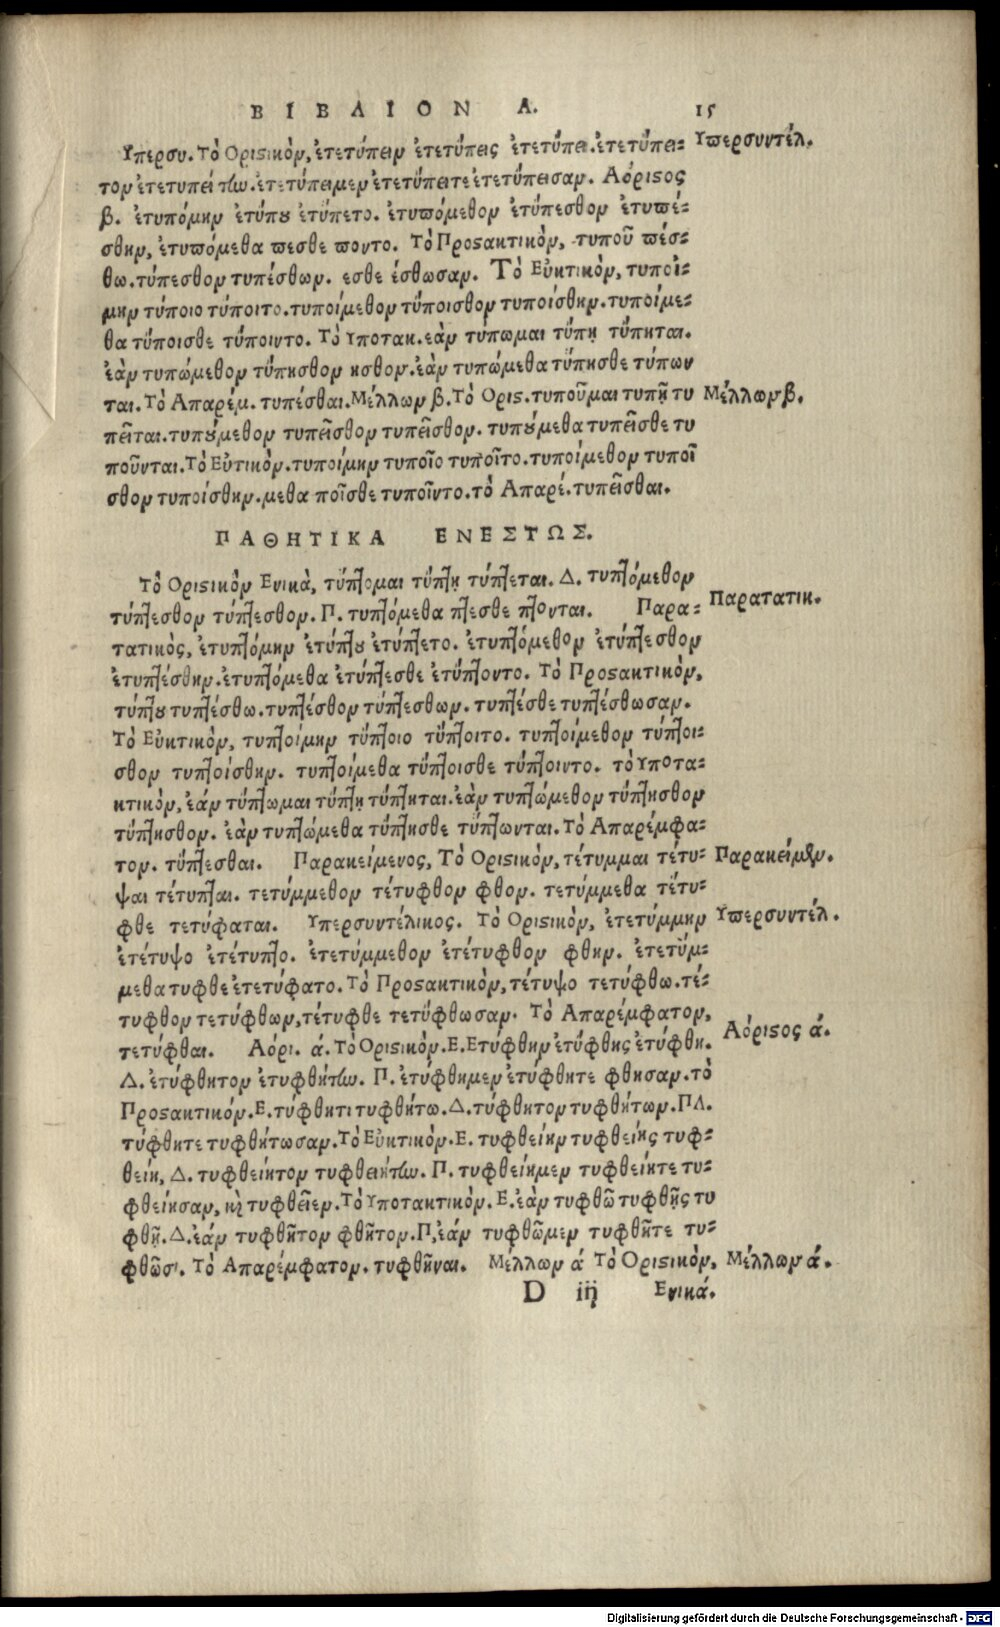 ΒΙΒΛΙΟΝ Α. 15
Ὑπερσυ. Τὸ Ὁριστικὸν, ἐτετύπειν ἐτετύπεις ἐτετύπει. ἐτετύπει-
τον ἐτετυπείτω. ἐτετύπειμεν ἐτετύπειτε ἐτετύπεισαν. Αόριστος
β. ἐτυπόμην ἐτύπου ἐτύπετο. ἐτυπόμεθον ἐτύπεσθον ἐτυπέ-
σθην, ἐτυπόμεθα πεσθε ποντο. Τὸ Προστακτικὸν, τυποῦ πέσ-
θω. τύπεσθον τυπέσθων. εσθε έσθωσαν. Τὸ Εὐκτικὸν, τυποί-
μην τύποιο τύποιτο. τυποίμεθον τύποισθον τυποίσθην. τυποίμε-
θα τύποισθε τύποιντο. Τὸ Υποτακ. ἐὰν τύπωμαι τύπῃ τύπηται.
ἐὰν τυπώμεθον τύπησθον ησθον. ἐὰν τυπώμεθα τύπησθε τύπων
ται. Τὸ Απαρέμ. τυπέσθαι. Μέλλων β. Τὸ Ορισ. τυποῦμαι τυπῇ τυ
πεῖται. τυπούμεθον τυπεῖσθον τυπεῖσθον. τυπούμεθα τυπεῖσθε τυ
ποῦνται. Τὸ Εὐτικὸν. τυποίμην τυποῖο τυποῖτο. τυποίμεθον τυποῖ
σθον τυποίσθην. μεθα ποῖσθε τυποῖντο. τὸ Απαρέ. τυπεῖσθαι.
ΠΑΘΗΤΙΚΑ ΕΝΕΣΤΩΣ.
Τὸ Οριστικὸν Ενικὰ, τύπτομαι τύπτῃ τύπτεται. Δ. τυπτόμεθον
τύπτεσθον τύπτεσθον. Π. τυπτόμεθα πτεσθε πτονται. Παρα-
τατικὸς, ἐτυπτόμην ἐτύπτου ἐτύπτετο. ἐτυπτόμεθον ἐτύπτεσθον
ἐτυπτέσθην. ἐτυπτόμεθα ἐτύπτεσθε ἐτύπτοντο. Τὸ Προστακτικὸν,
τύπτου τυπτέσθω. τυπτέσθον τύπτεσθων. τυπτέσθε τυπτέσθωσαν.
Τὸ Εὐκτικὸν, τυπτοίμην τύπτοιο τύπτοιτο. τυπτοίμεθον τύπτοι-
σθον τυπτοίσθην. τυπτοίμεθα τύπτοισθε τύπτοιντο. τὸ Υποτα-
κτικὸν, ἐάν τύπτωμαι τύπτῃ τύπτηται. ἐὰν τυπτώμεθον τύπτησθον
τύπτησθον. ἐὰν τυπτώμεθα τύπτησθε τύπτωνται. Τὸ Απαρέμφα-
τον. τύπτεσθαι. Παρακείμενος, Τὸ Οριστικὸν, τέτυμμαι τέτυ-
ψαι τέτυπται. τετύμμεθον τέτυφθον φθον. τετύμμεθα τέτυ-
φθε τετύφαται. Υπερσυντέλικος. Τὸ Οριστικὸν, ἐτετύμμην
ἐτέτυψο ἐτέτυπτο. ἐτετύμμεθον ἐτέτυφθον φθην. ἐτετύμ-
μεθα τυφθε ἐτετύφατο. Τὸ Προστακτικὸν, τέτυψο τετύφθω. τέ-
τυφθον τετύφθων, τέτυφθε τετύφθωσαν. Τὸ Απαρέμφατον,
τετύφθαι. Αόρι. ά. Τὸ Οριστικὸν. Ε. Ετύφθην ἐτύφθης ἐτύφθη.
Δ. ἐτύφθητον ἐτυφθήτω. Π. ἐτύφθημεν ἐτύφθητε φθησαν. τὸ
Προστακτικὸν. Ε. τύφθητι τυφθήτω. Δ. τύφθητον τυφθήτων. ΠΛ.
τύφθητε τυφθήτωσαν. Τὸ Εὐκτικὸν. Ε. τυφθείην τυφθείης τυφ-
θείη, Δ. τυφθείητον τυφθειήτω. Π. τυφθείημεν τυφθείητε τυ-
φθείησαν, καὶ τυφθεῖεν. Τὸ Υποτακτικὸν. Ε. ἐὰν τυφθῶ τυφθῇς τυ
φθῇ. Δ. ἐάν τυφθῆτον φθῆτον. Π, ἐάν τυφθῶμεν τυφθῆτε τυ-
φθῶσι. Τὸ Απαρέμφατον. τυφθῆναι. Μέλλων ά Τὸ Οριστικὸν,
D iij Ενικά.
Υπερσυντέλ.
Μέλλων β.
Παρατατικ.
Παρακείμεν.
Υπερσυντέλ.
Αόριστος ά.
Μέλλων ά.
Digitalisierung gefördert durch die Deutsche Forschungsgemeinschaft - DFG